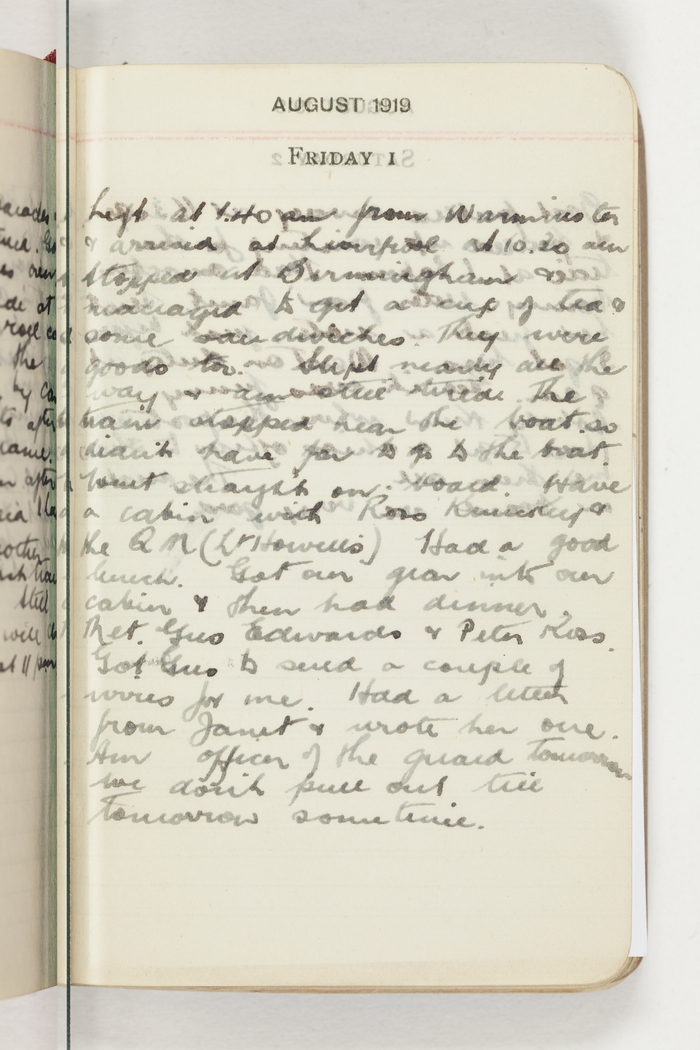 AUGUST 1919
FRIDAY 1
Left at 1.40 am from Warminster
& arrived at Liverpool at 10.20 am
Stopped at Birmingham &
managed to get a cup of tea &
some sandwiches. They were
goods too. Slept nearly all the
way & am still tired. The
train stopped near the boat. so
didn't have far to go to the boat.
Went straight on board. Have
a cabin with Ross &
the QM (Lt Howells) Had a good
lunch. Got our gear into our
cabin & then had dinner.
Met. Gus Edwards & Peter Ross.
Got Gus to send a couple of
wires for me. Had a letter
from Janet & wrote her one.
Am officer of the guard tomorrow
We don't pull out till
tomorrow sometime.